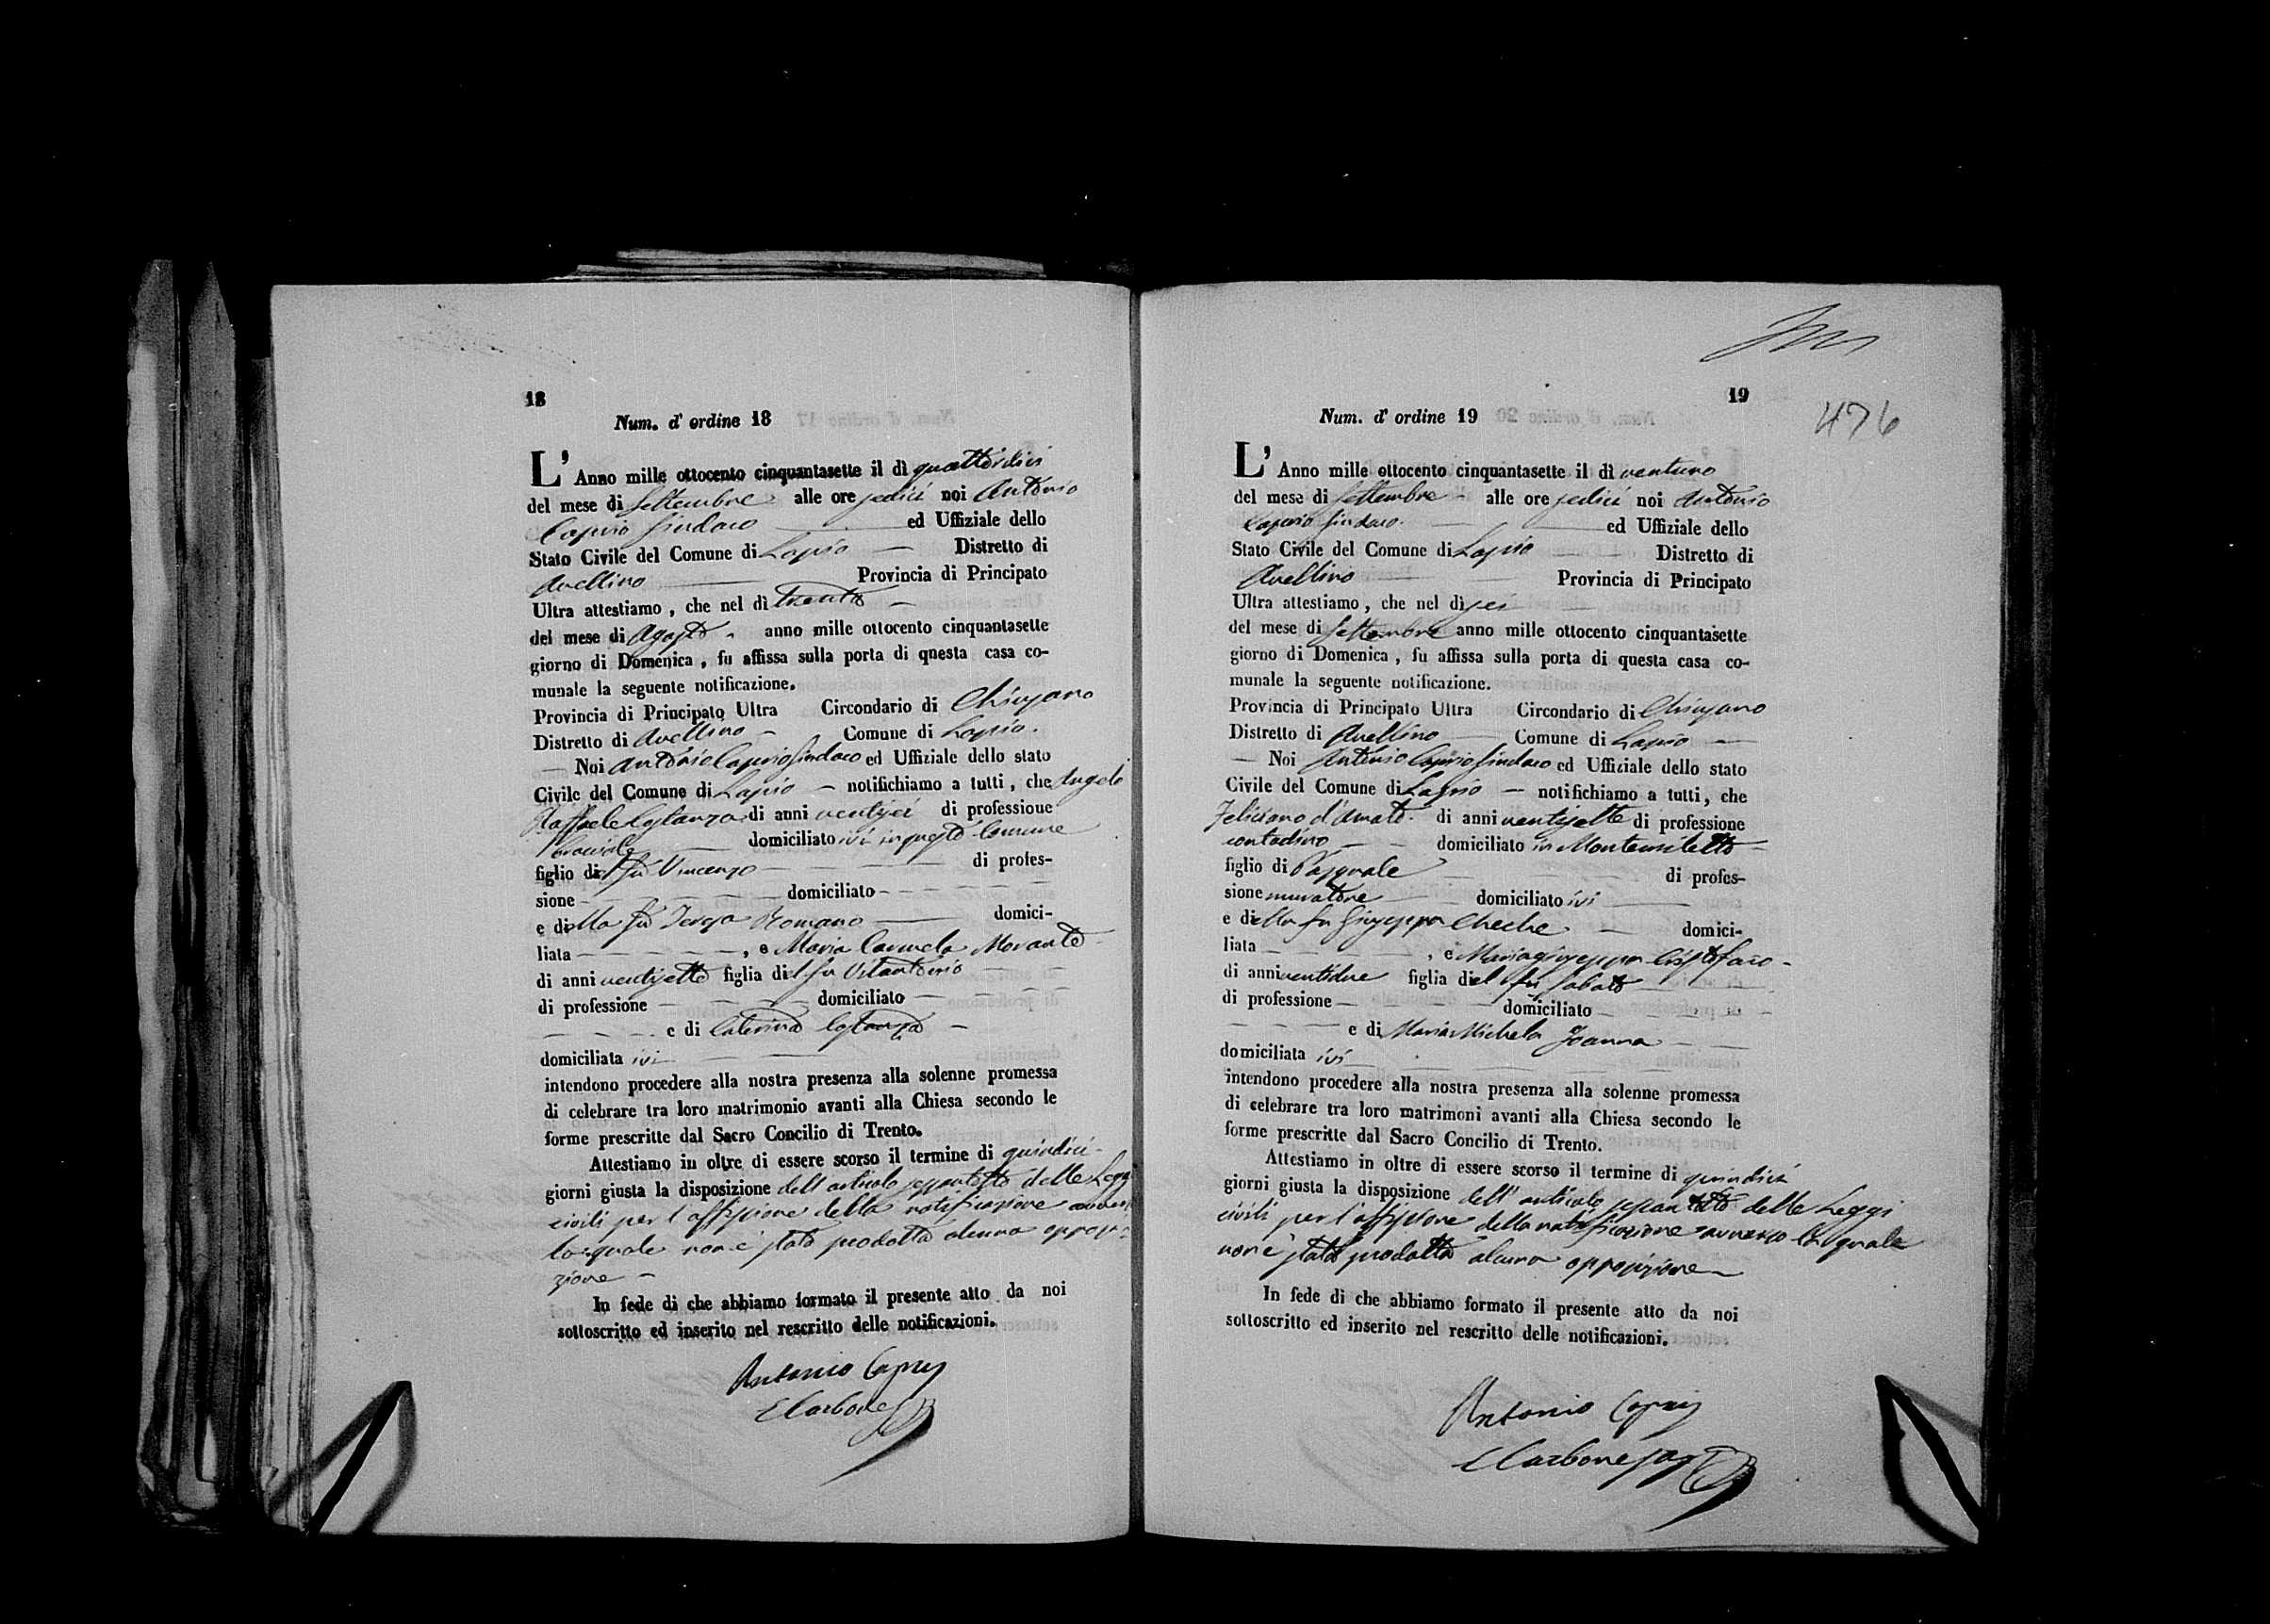 18
Num. d' ordine 18
L' Anno mille ottocento cinquantasette il dì quattordici
del mese di Settembre alle ore sedici noi Antonio
Caprio Sindaco ed Uffiziale dello
Stato Civile del Comune di Lapio Distretto di
Avellino Provincia di Principato
Ultra attestiamo, che nel dì trenta
del mese di Agosto anno mille ottocento cinquantasette
giorno di Domenica, fu affissa sulla porta di questa casa co-
munale la seguente notificazione.
Provincia di Principato Ultra Circondario di Chiusano
Distretto di Avellino Comune di Lapio.
Noi Antonio Caprio Sindaco ed Uffiziale dello stato
Civile del Comune di Lapio notifichiamo a tutti, che Angelo
Raffaele Costanzo di anni ventisei di professione
bracciale domiciliato ivi in questo Comune
figlio del fu Vincenzo di profes-
sione domiciliato
e della fu Teresa Romano domici-
liata , e Maria Carmela Morante
di anni ventisette figlia del fu Vitantonio
di professione domiciliato
e di Caterina Costanza
domiciliata ivi
intendono procedere alla nostra presenza alla solenne promessa
di celebrare tra loro matrimonio avanti alla Chiesa secondo le
forme prescritte dal Sacro Concilio di Trento.
Attestiamo in oltre di essere scorso il termine di quindici
giorni giusta la disposizione dell'articolo sessantotto delle Leggi
civili per l'affissione della notificazione avverso
la quale non è stata prodotta alcuna opposi-
zione
In fede di che abbiamo formato il presente atto da noi
sottoscritto ed inserito nel rescritto delle notificazioni.
Antonio Caprio
C Carbone
19
476
Num. d' ordine 19
L' Anno mille ottocento cinquantasette il dì ventuno
del mese di Settembre alle ore sedici noi Antonio
Caprio Sindaco ed Uffiziale dello
Stato Civile del Comune di Lapio Distretto di
Avellino Provincia di Principato
Ultra attestiamo, che nel dì sei
del mese di Settembre anno mille ottocento cinquantasette
giorno di Domenica, fu affissa sulla porta di questa casa co-
munale la seguente notificazione.
Provincia di Principato Ultra Circondario di Chiusano
Distretto di Avellino Comune di Lapio
Noi Antonio Caprio Sindaco ed Uffiziale dello stato
Civile del Comune di Lapio notifichiamo a tutti, che
Feliciano d'Amato di anni ventisette di professione
contadino domiciliato in Montemiletto
figlio di Pasquale di profes-
sione muratore domiciliato ivi
e della fu Giuseppa Cheche domici-
liata , e Mariagiuseppa Cristofaro
di anni ventidue figlia del fu Sabato
di professione domiciliato
e di Maria Michela Joanna
domiciliata ivi
intendono procedere alla nostra presenza alla solenne promessa
di celebrare tra loro matrimoni avanti alla Chiesa secondo le
forme prescritte dal Sacro Concilio di Trento.
Attestiamo in oltre di essere scorso il termine di quindici
giorni giusta la disposizione dell'articolo sessantotto delle Leggi
civili per l'affissione della notificazione avverso la quale
non è stata prodotta alcuna opposizione
In fede di che abbiamo formato il presente atto da noi
sottoscritto ed inserito nel rescritto delle notificazioni.
Antonio Caprio
C Carbone